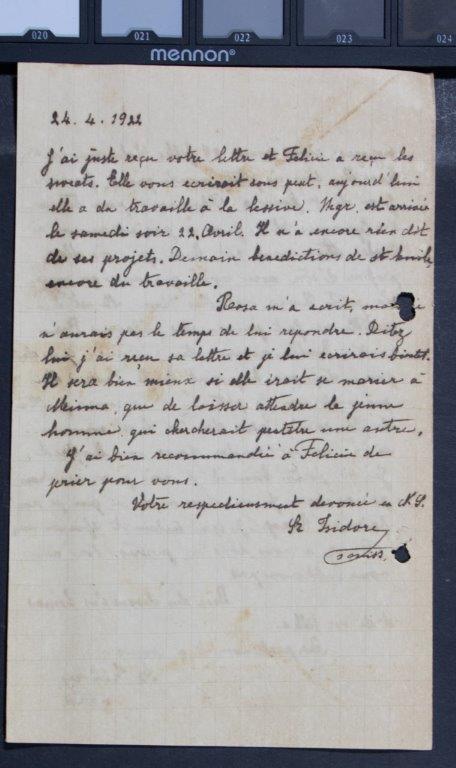 020 021 022 023 024
mennon®
24. 4. 1922
J'ai juste reçu votre lettre et Felicie a reçu les
sweats. Elle vous ecrirait sous peut, aujourd'hui
elle a du travaille à la lessive. Mgr. est arrivée
le samedi soir 22. Avril. Il n'a encore rien dit
de ses projets. Demain benedictions de st. Emile,
encore du travaille.
Rosa m'a ecrit, mais je
n'aurais pas le temps de lui repondre. Ditez
lui, j'ai reçu sa lettre et je lui ecrirais bientôt.
Il sera bien mieux si elle irait se marier à
que de laisser attendre le jeune
homme qui chercherait petêtre une autre.
J'ai bien recommandée à Felicie de
prier pour vous.
Votre respectieusment devouée en N. S.
Sr Isidore